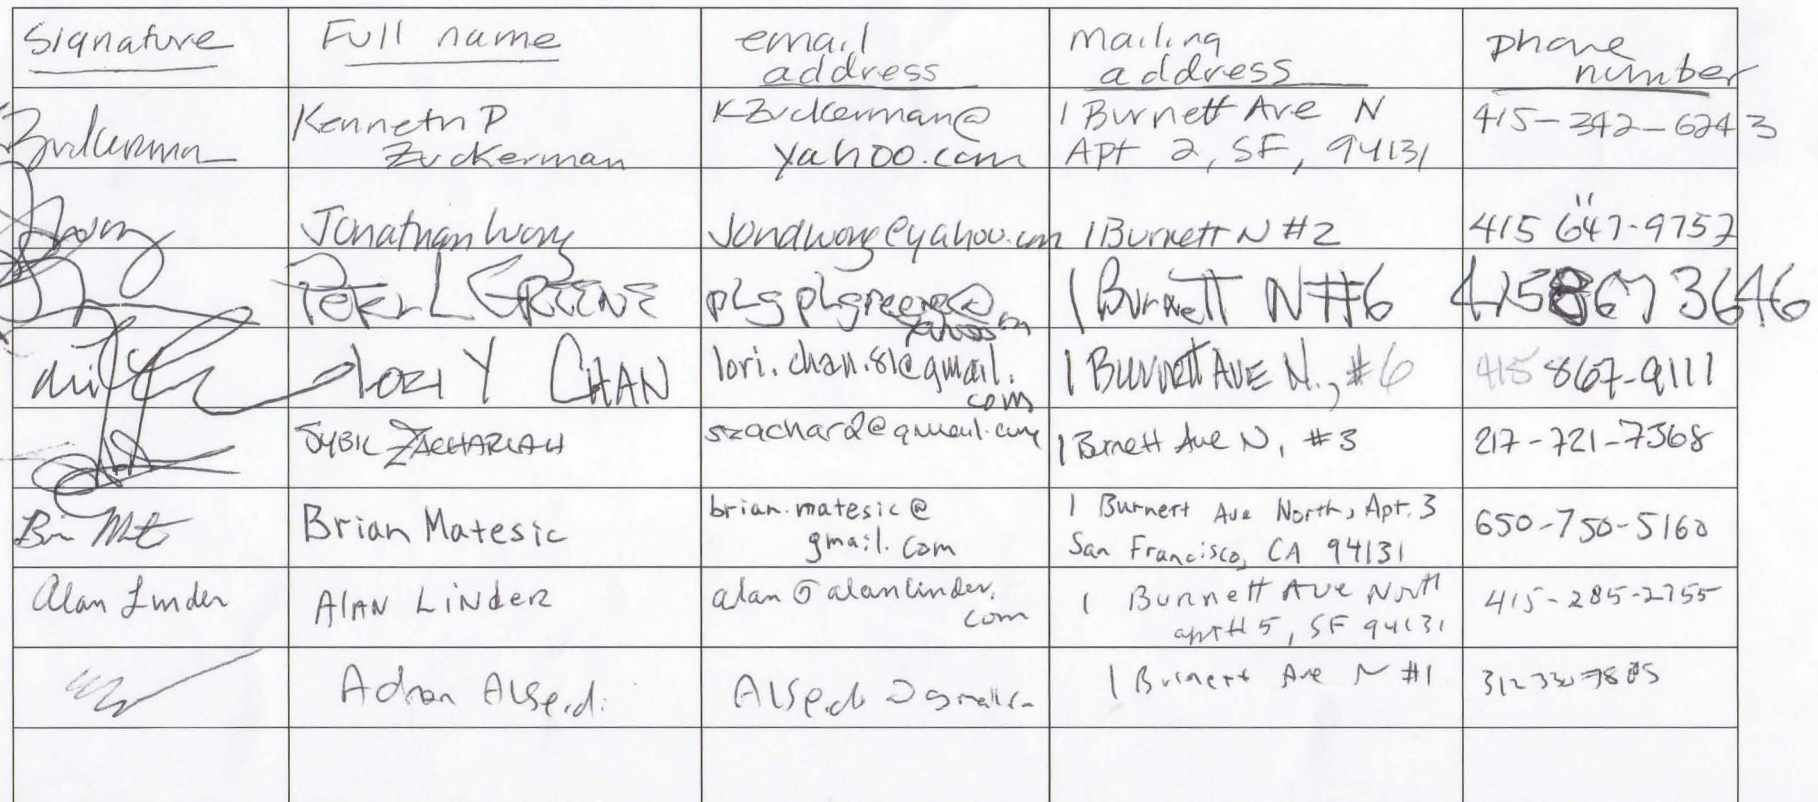 Signature Full name email address mailing address phone number
Zuckerman Kenneth P Zuckerman KZuckerman@yahoo.com 1 Burnett Ave N Apt 2, SF, 94131 415-342-6243
Jonathan Wong Jondwong@yahoo.com 1 Burnett N #2 415 647-9757
PETER L GREENE 1 Burnett N #6 415 867 3646
LORI Y CHAN lori.chan.81@gmail.com 1 Burnett AVE N., #6 415 867-9111
SYBIL ZACHARIAH szachar2@gmail.com 1 Burnett Ave N, #3 217-721-7368
Brian Matesic brian.matesic@gmail.com 1 Burnett Ave North, Apt. 3 San Francisco, CA 94131 650-750-5160
Alan Linder ALAN LINDER alan@alanlinder.com 1 Burnett Ave North apt #5, SF 94131 415-285-2755
1 Burnett Ave N #1